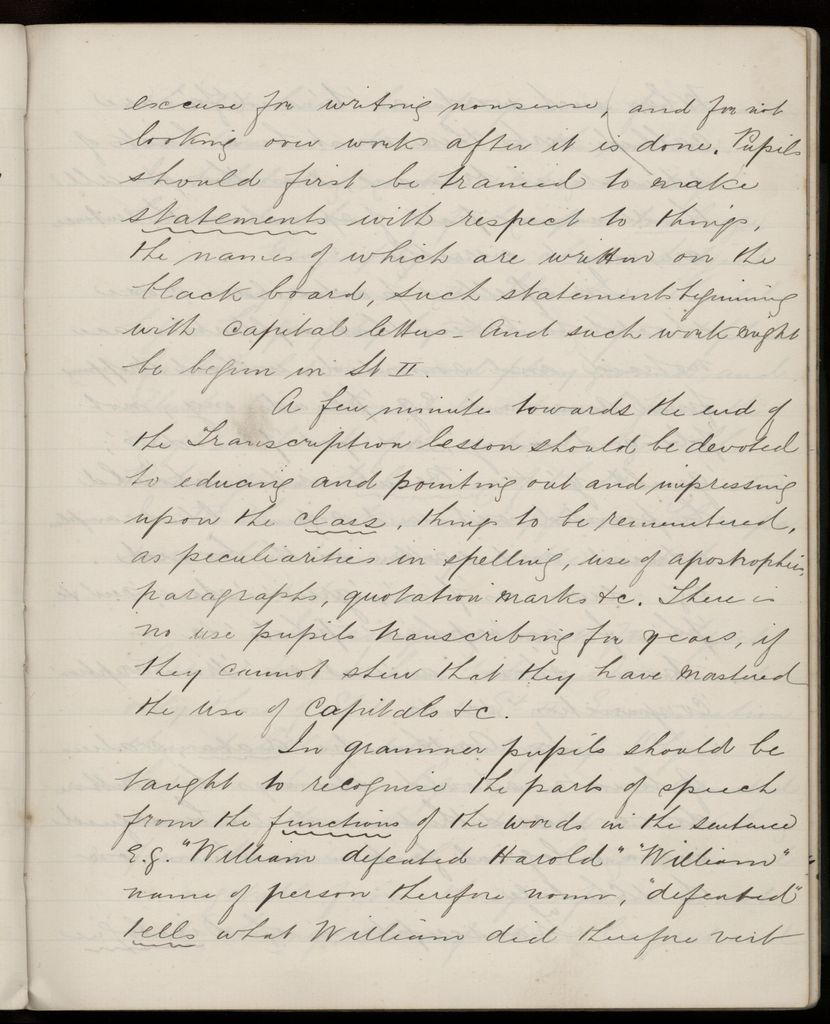 excuse for writing nonsense, and for not
looking over work after it is done. Pupils
should first be trained to make
statements with respect to things,
the names of which are written on the
black board, such statements beginning
with capital letters - And such work ought
be begun in St II.
A few minutes towards the end of
the Transcription lesson should be devoted
to educing and pointing out and impressing
upon the class, things to be remembered,
as peculiarities in spelling, use of apostrophes,
paragraphs, quotation marks &c. There is
no use pupils transcribing for years, if
they cannot shew that they have mastered
the use of Capitals &c.
In grammer pupils should be
taught to recognise the parts of speech
from the functions of the words in the sentence
E.g. "William defeated Harold" "William"
name of person therefore noun, "defeated"
tells what William did therefore verb